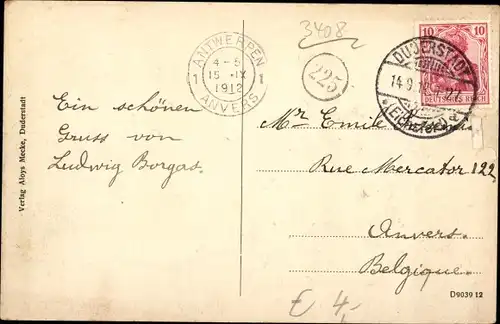 3408
ANTWERPEN
4-5
1 15 IX 1
1912
ANVERS
225
10 10
DEUTSCHES REICH
DUDERSTADT
14.9.12.
(EICHSFELD) a
Ein schönen
Gruss von
Ludwig Borgas.
Mr Emile
Rue Mercator 122
Anvers.
Belgique.
Verlag Aloys Mecke, Duderstadt
D9039 12
€ 4,-